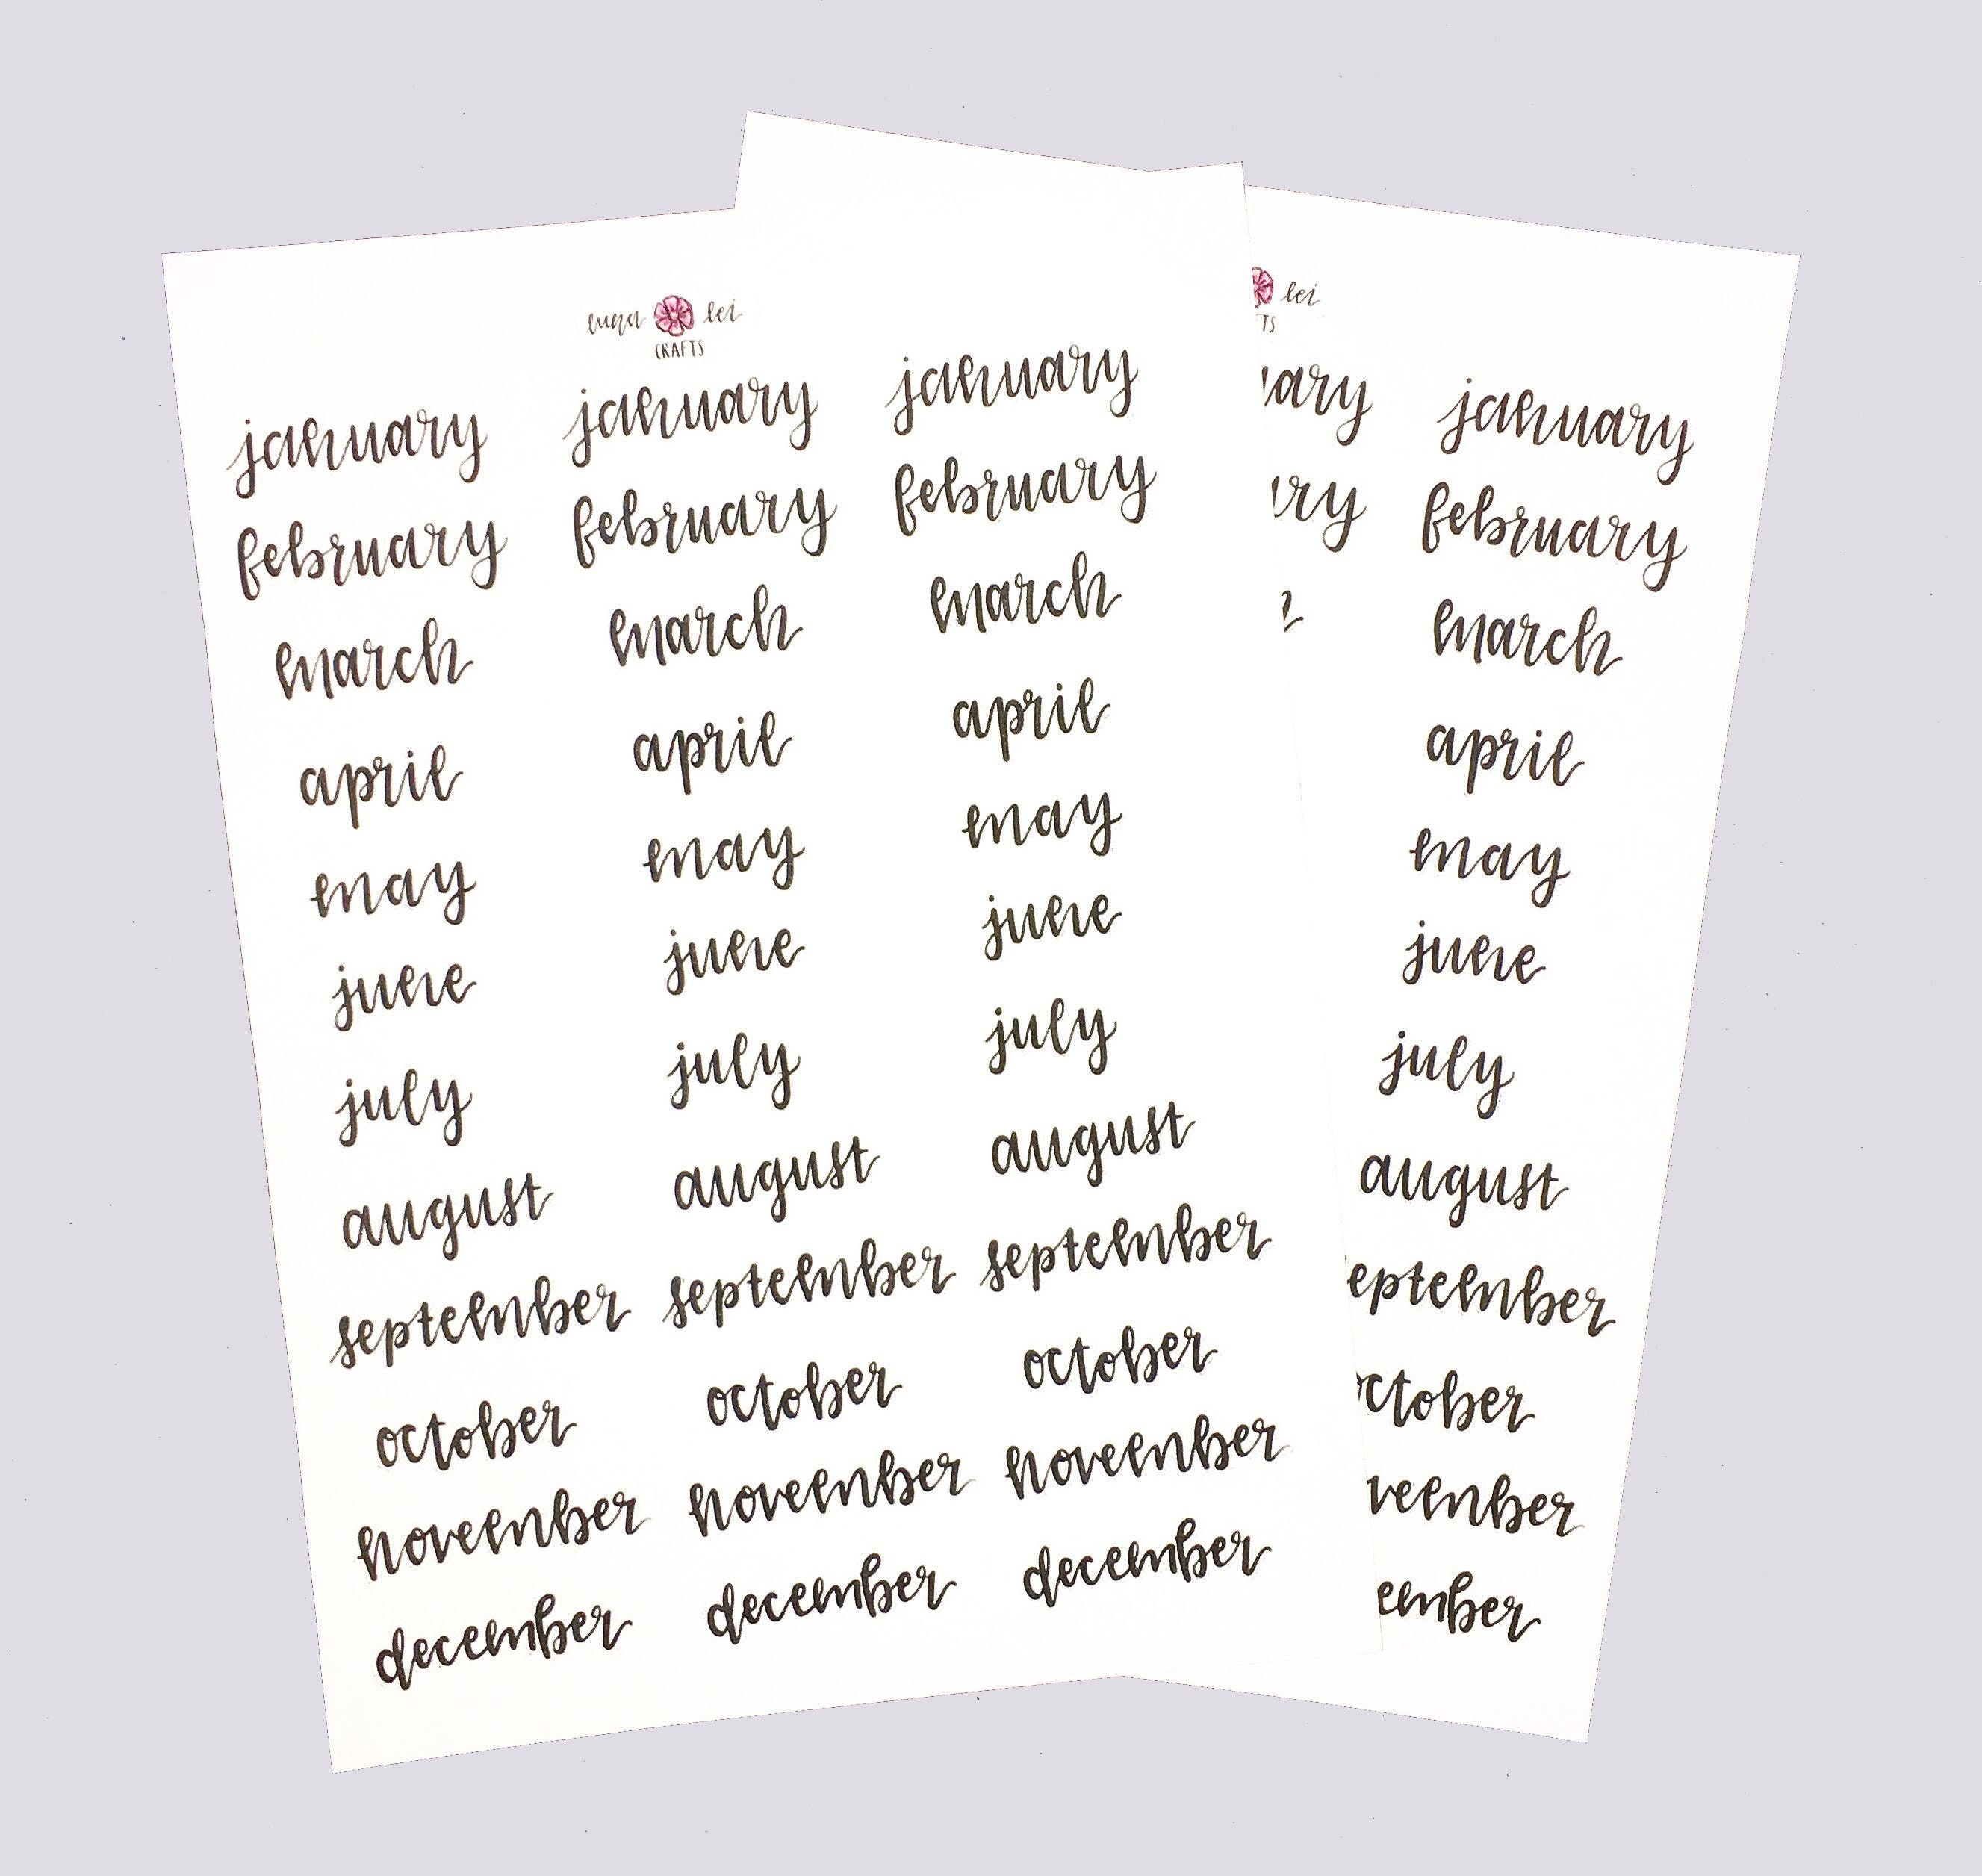 luna lei
CRAFTS
january january january
february february february
march march march
april april april
may may may
june june june
july july july
august august august
september september september
october october october
november november november
december december december
lei
TS
ary january
ry february
march
april
may
june
july
august
eptember
ctober
vember
ember